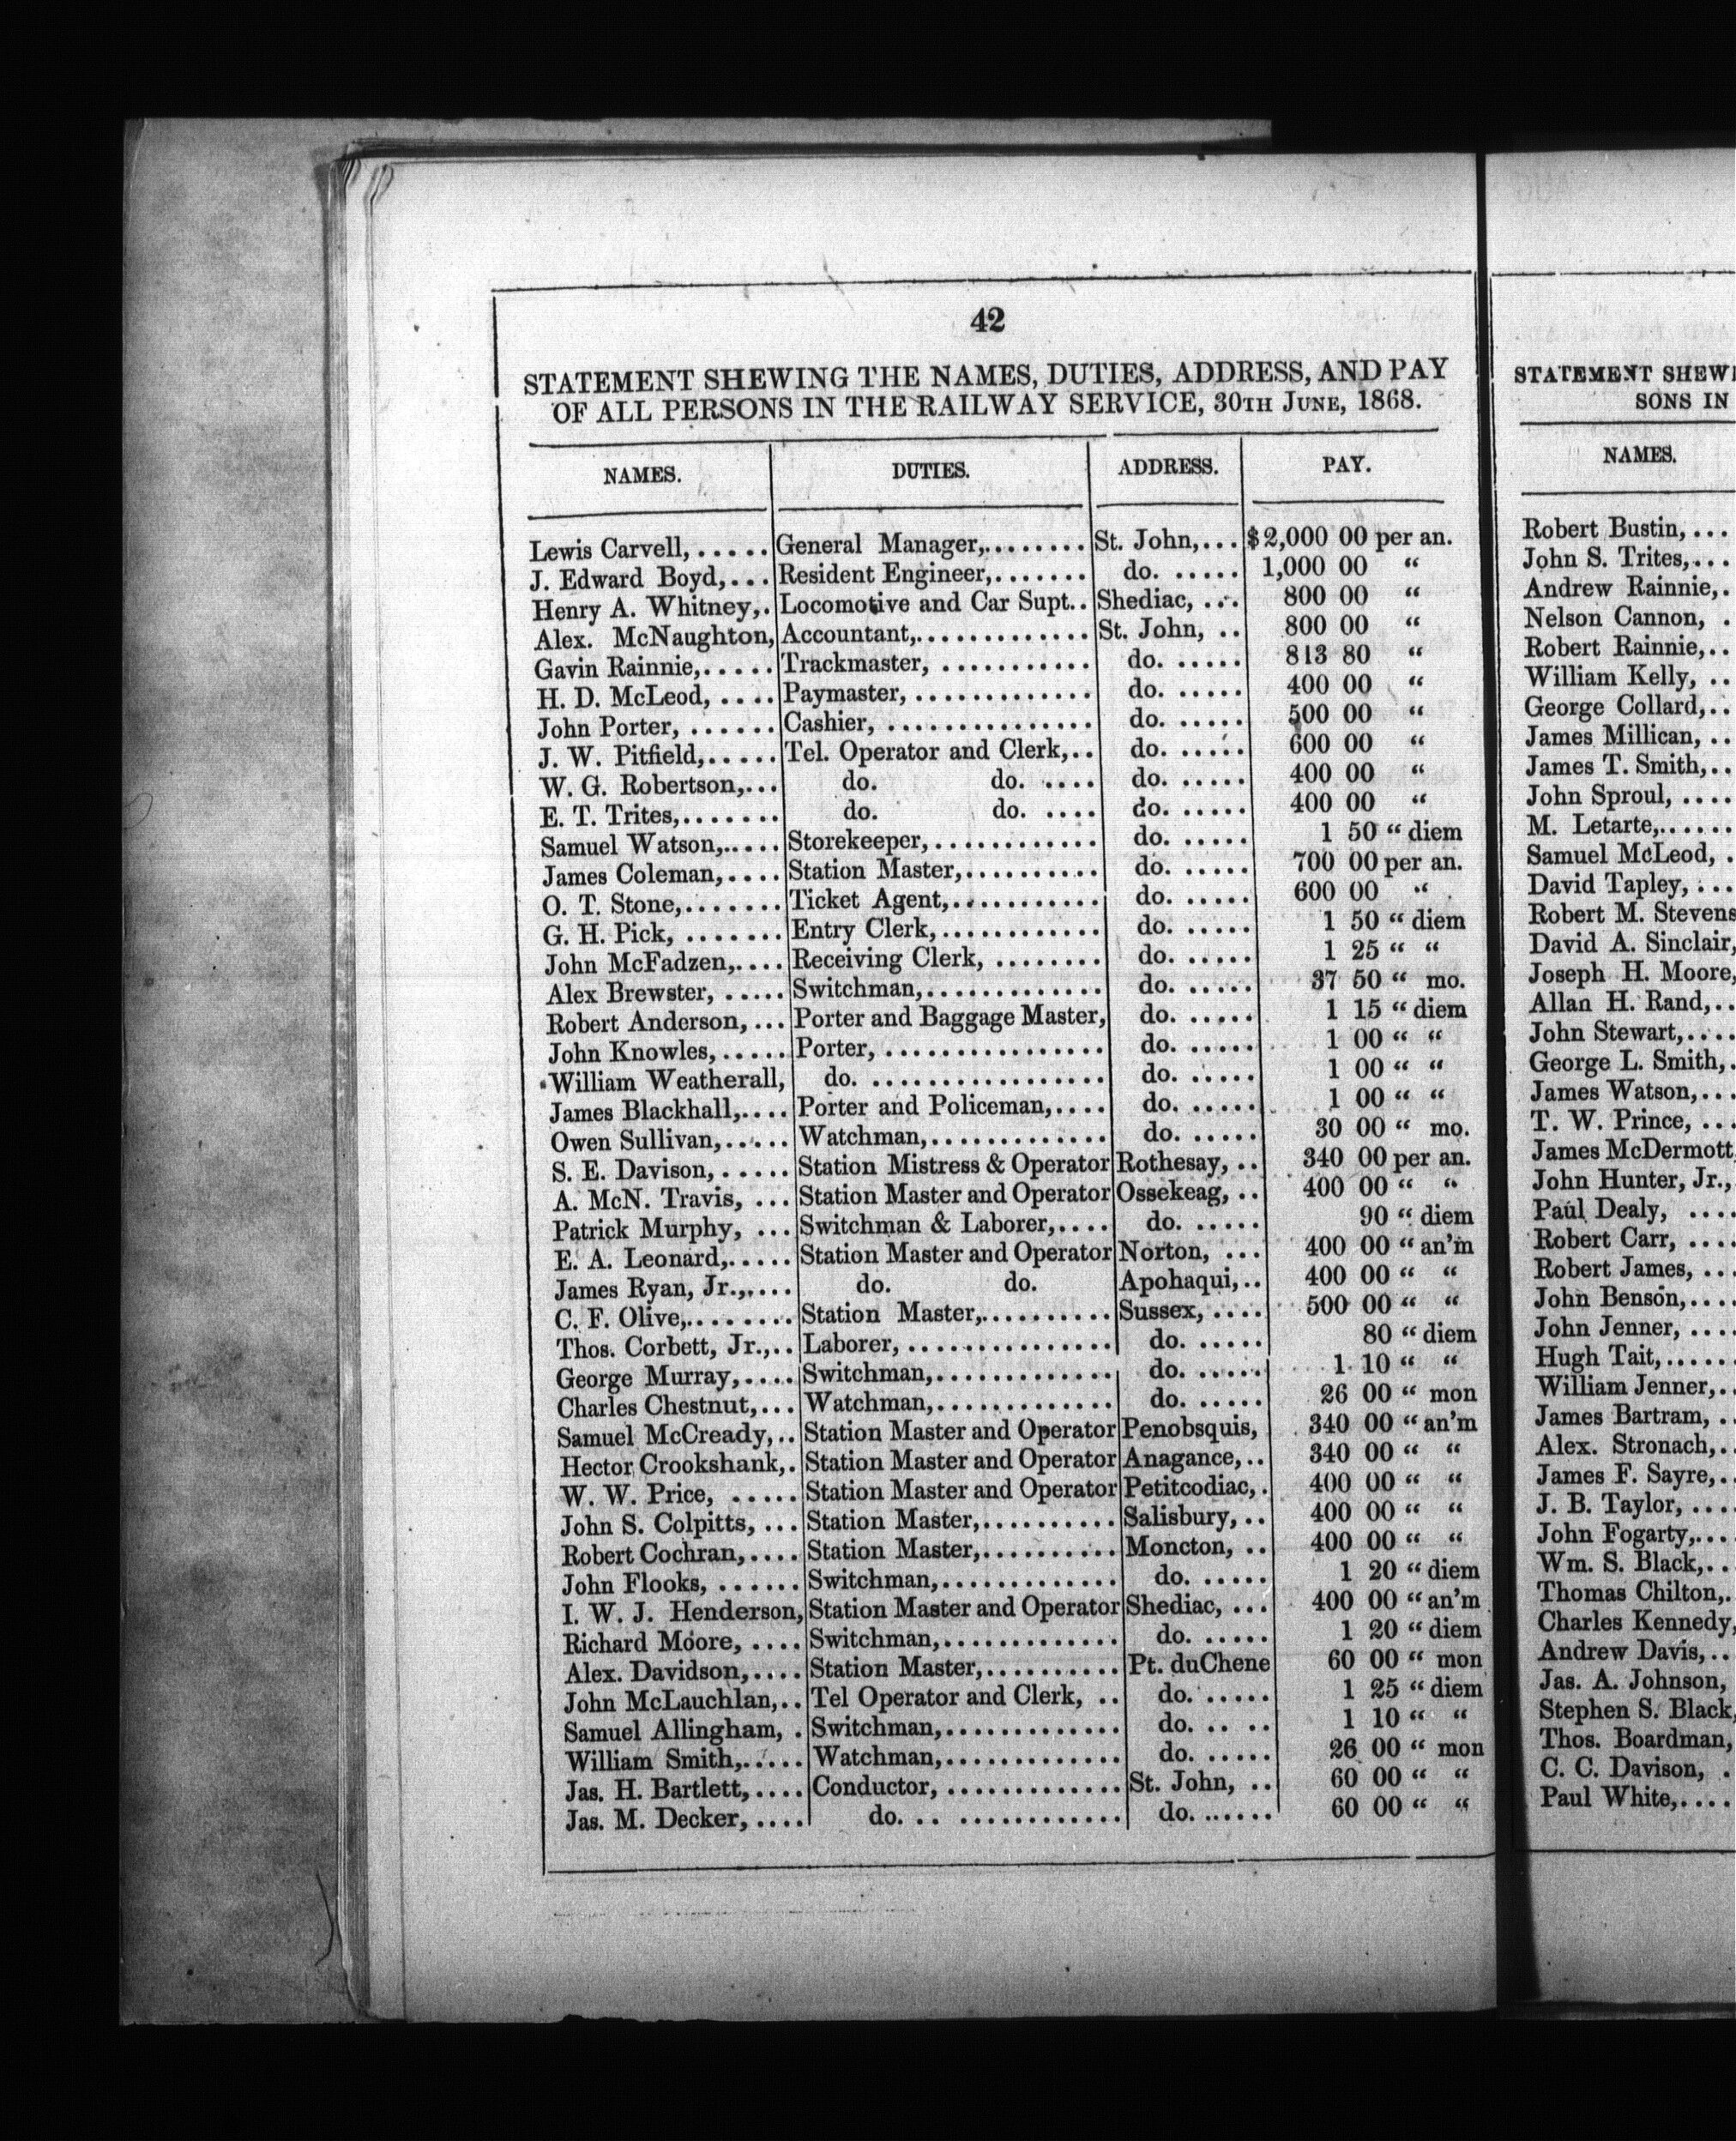 42
STATEMENT SHEWING THE NAMES, DUTIES, ADDRESS, AND PAY
OF ALL PERSONS IN THE RAILWAY SERVICE, 30TH JUNE, 1868.
NAMES. DUTIES. ADDRESS. PAY.
Lewis Carvell,..... General Manager,........ St. John,... $2,000 00 per an.
J. Edward Boyd,... Resident Engineer,....... do. ..... 1,000 00 "
Henry A. Whitney,. Locomotive and Car Supt.. Shediac, ... 800 00 "
Alex. McNaughton, Accountant,............. St. John, .. 800 00 "
Gavin Rainnie,..... Trackmaster, ........... do. ..... 813 80 "
H. D. McLeod, .... Paymaster, ............. do. ..... 400 00 "
John Porter, ...... Cashier, ............... do. ..... 500 00 "
J. W. Pitfield,..... Tel. Operator and Clerk,.. do. ..... 600 00 "
W. G. Robertson,... do. do. .... do. ..... 400 00 "
E. T. Trites,....... do. do. .... do. ..... 400 00 "
Samuel Watson,..... Storekeeper, ............ do. ..... 1 50 " diem
James Coleman,.... Station Master,.......... do. ..... 700 00 per an.
O. T. Stone,....... Ticket Agent,........... do. ..... 600 00 "
G. H. Pick, ....... Entry Clerk,............ do. ..... 1 50 " diem
John McFadzen,.... Receiving Clerk, ........ do. ..... 1 25 " "
Alex Brewster, ..... Switchman,............. do. ..... 37 50 " mo.
Robert Anderson,... Porter and Baggage Master, do. ..... 1 15 " diem
John Knowles,..... Porter, ................ do. ..... 1 00 " "
William Weatherall, do. ................. do. ..... 1 00 " "
James Blackhall,.... Porter and Policeman,.... do. ..... 1 00 " "
Owen Sullivan,..... Watchman,............. do. ..... 30 00 " mo.
S. E. Davison, ..... Station Mistress & Operator Rothesay, .. 340 00 per an.
A. McN. Travis, ... Station Master and Operator Ossekeag, .. 400 00 " "
Patrick Murphy, ... Switchman & Laborer,.... do. ..... 90 " diem
E. A. Leonard,..... Station Master and Operator Norton, ... 400 00 " an'm
James Ryan, Jr.,.... do. do. Apohaqui,.. 400 00 " "
C. F. Olive,........ Station Master,.......... Sussex, .... 500 00 " "
Thos. Corbett, Jr.,.. Laborer, ............... do. ..... 80 " diem
George Murray,.... Switchman,............. do. ..... 1 10 " "
Charles Chestnut,... Watchman,............. do. ..... 26 00 " mon
Samuel McCready,.. Station Master and Operator Penobsquis, 340 00 " an'm
Hector Crookshank,. Station Master and Operator Anagance,.. 340 00 " "
W. W. Price, ..... Station Master and Operator Petitcodiac,. 400 00 " "
John S. Colpitts, ... Station Master,.......... Salisbury,.. 400 00 " "
Robert Cochran,.... Station Master,.......... Moncton, .. 400 00 " "
John Flooks, ...... Switchman,............. do. ..... 1 20 " diem
I. W. J. Henderson, Station Master and Operator Shediac, ... 400 00 " an'm
Richard Moore, .... Switchman,............. do. ..... 1 20 " diem
Alex. Davidson,.... Station Master,.......... Pt. duChene 60 00 " mon
John McLauchlan,.. Tel Operator and Clerk, .. do. ..... 1 25 " diem
Samuel Allingham, . Switchman,............. do. .. .. 1 10 " "
William Smith,..... Watchman,............. do. ..... 26 00 " mon
Jas. H. Bartlett,.... Conductor, ............. St. John, .. 60 00 " "
Jas. M. Decker, .... do. .. ............ do. ...... 60 00 " "
STATEMENT SHEW
SONS IN
NAMES.
Robert Bustin, ...
John S. Trites,...
Andrew Rainnie,.
Nelson Cannon, .
Robert Rainnie,..
William Kelly, ..
George Collard,..
James Millican, ..
James T. Smith,..
John Sproul, ....
M. Letarte,......
Samuel McLeod, .
David Tapley, ...
Robert M. Stevens
David A. Sinclair,
Joseph H. Moore,
Allan H. Rand,..
John Stewart,....
George L. Smith,.
James Watson,...
T. W. Prince, ...
James McDermott
John Hunter, Jr.,
Paul Dealy, ....
Robert Carr, ....
Robert James, ...
John Benson,....
John Jenner, ....
Hugh Tait,......
William Jenner,..
James Bartram, .
Alex. Stronach,..
James F. Sayre,..
J. B. Taylor, ....
John Fogarty,....
Wm. S. Black,...
Thomas Chilton,.
Charles Kennedy,
Andrew Davis,...
Jas. A. Johnson,
Stephen S. Black,
Thos. Boardman,
C. C. Davison, .
Paul White,....